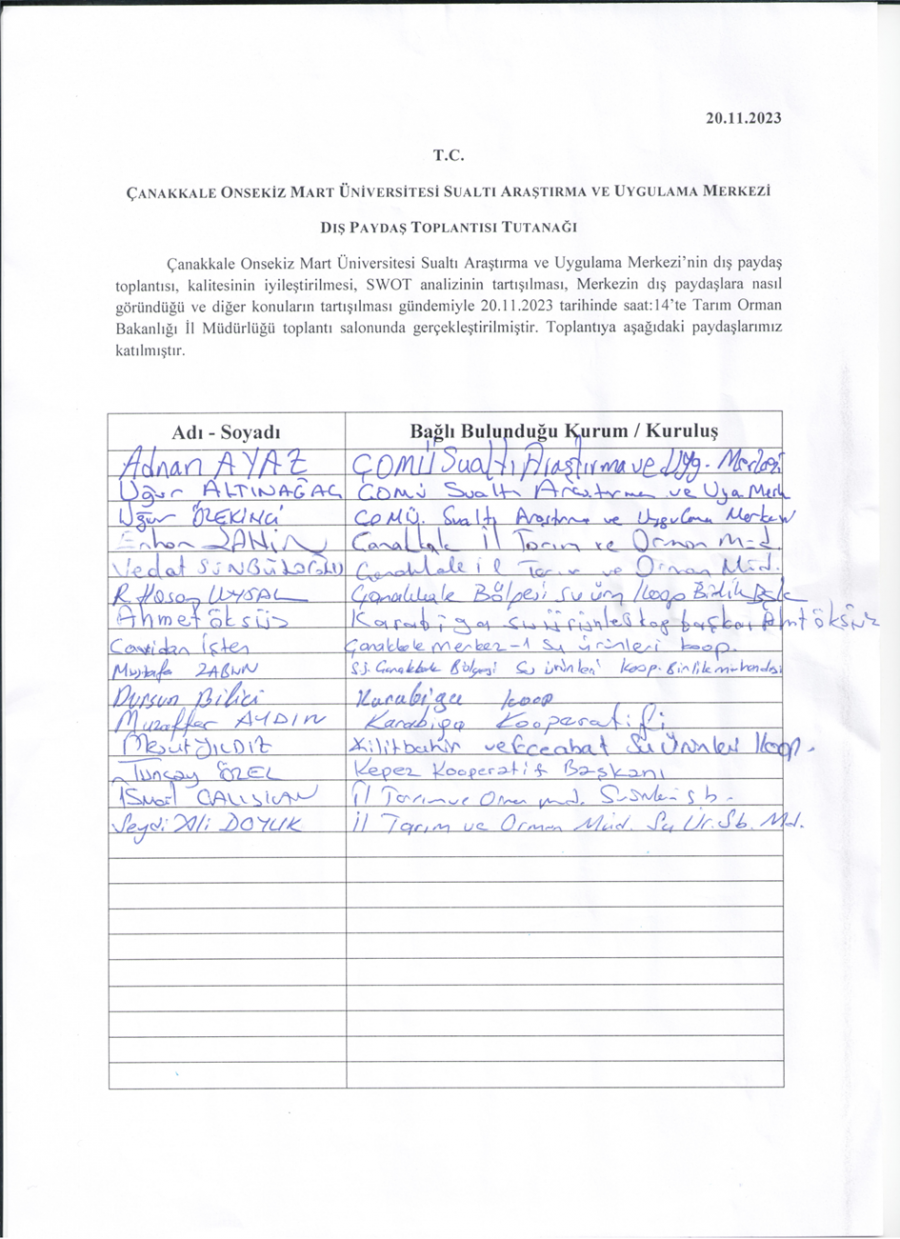 20.11.2023
T.C.
ÇANAKKALE ONSEKİZ MART ÜNİVERSİTESİ SUALTI ARAŞTIRMA VE UYGULAMA MERKEZİ
DIŞ PAYDAŞ TOPLANTISI TUTANAĞI
Çanakkale Onsekiz Mart Üniversitesi Sualtı Araştırma ve Uygulama Merkezi'nin dış paydaş
toplantısı, kalitesinin iyileştirilmesi, SWOT analizinin tartışılması, Merkezin dış paydaşlara nasıl
göründüğü ve diğer konuların tartışılması gündemiyle 20.11.2023 tarihinde saat:14'te Tarım Orman
Bakanlığı İl Müdürlüğü toplantı salonunda gerçekleştirilmiştir. Toplantıya aşağıdaki paydaşlarımız
katılmıştır.
Adı - Soyadı Bağlı Bulunduğu Kurum / Kuruluş
Adnan AYAZ ÇOMÜ Sualtı Araştırma ve Uyg. Merkezi
Uğur ALTINAĞAÇ ÇOMÜ Sualtı Araştırma ve Uyg. Merk
Uğur ÖZEKİNCİ ÇOMÜ. Sualtı Araştırma ve Uygulama Merkezi
Çanakkale İl Tarım ve Orman Müd.
Vedat Çanakkale il Tarım ve Orman Müd.
R. Hasan UYSAL Çanakkale Bölgesi su ürn Koop Birlik Bşk
Ahmet öksüz Karabiga su ürünleri koop başkanı Ahmt öksüz
Cavidan İşten Çanakkale merkez-1 su ürünleri koop.
Mustafa ZABUN S.S. Çanakkale Bölgesi Su ürünleri Koop. Birlik mühendisi
Dursun Bilici Karabiga koop
Muzaffer AYDIN Karabiga Kooperatifi
Mesut YILDIZ Kilitbahir ve Eceabat Su Ürünleri Koop.
Tunçay ÖZEL Kepez Kooperatif Başkanı
İsmail ÇALIŞKAN İl Tarım ve Orman md. şb.
Seydi Ali DOYUK İl Tarım ve Orman Müd. Su Ür. Şb. Md.